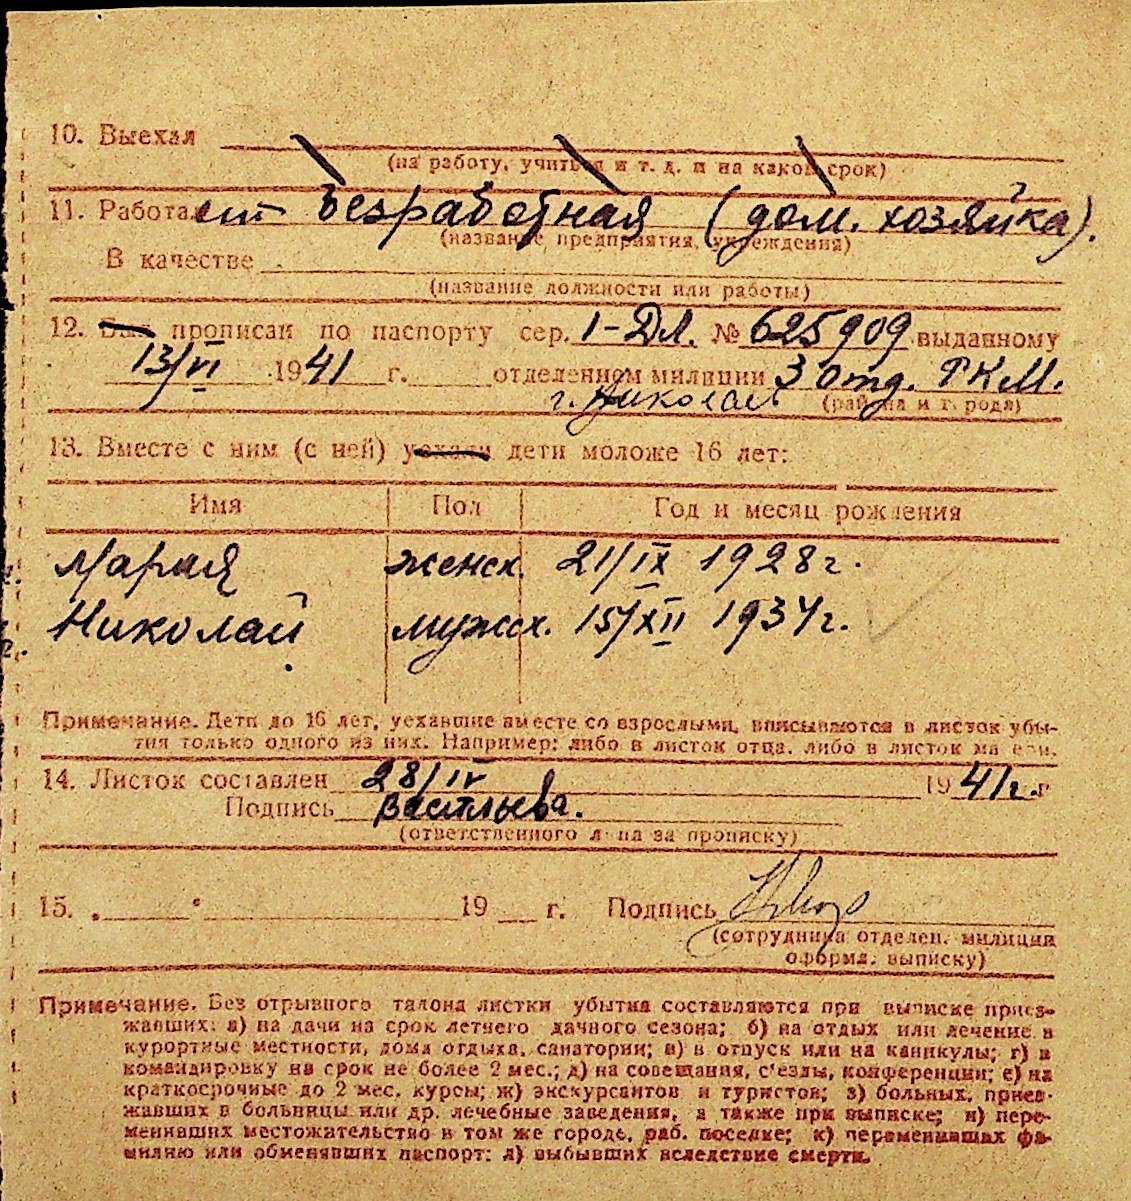 10. Выехал
(на работу, учиться и т. д. и на какой срок)
11. Работает безработная (дом. хозяйка).
(название предприятия, учреждения)
В качестве
(название должности или работы)
12. Был прописан по паспорту сер. 1-ДЛ. № 625909 выданному
13/VI 1941 г. отделением милиции 3 отд. РКМ.
г. Николаев (района и города)
13. Вместе с ним (с ней) уехали дети моложе 16 лет:
Имя Пол Год и месяц рождения
Мария женск. 21/IX 1928 г.
Николай мужск. 15/XII 1934 г.
Примечание. Дети до 16 лет, уехавшие вместе со взрослыми, вписываются в листок убы-
тия только одного из них. Например: либо в листок отца, либо в листок матери.
14. Листок составлен 28/IV 1941 г. г
Подпись Васильева.
(ответственного лица за прописку)
15. „ “ 19 г. Подпись
(сотрудника отделен. милиции
оформл. выписку)
Примечание. Без отрывного талона листки убытия составляются при выписке приез-
жавших: а) на дачи на срок летнего дачного сезона; б) на отдых или лечение в
курортные местности, дома отдыха, санатории; в) в отпуск или на каникулы; г) в
командировку на срок не более 2 мес.; д) на совещания, с'езды, конференции; е) на
краткосрочные до 2 мес. курсы; ж) экскурсантов и туристов; з) больных, приез-
жавших в больницы или др. лечебные заведения, а также при выписке; и) пере-
менивших местожительство в том же городе, раб. поселке; к) переменивших фа-
милию или обменявших паспорт; л) выбывших вследствие смерти.